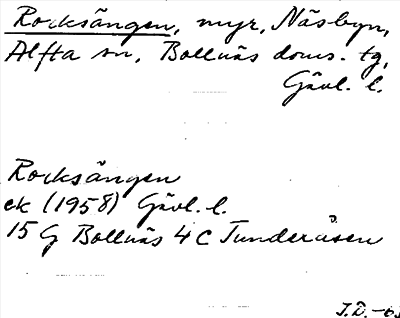 Rocksängen, myr, Näsbyn,
Alfta sn, Bollnäs doms. tg,
Gävl. l.
Rocksängen
ek (1958) Gävl. l.
15 G Bollnäs 4 C Tunderåsen
J.D.-63